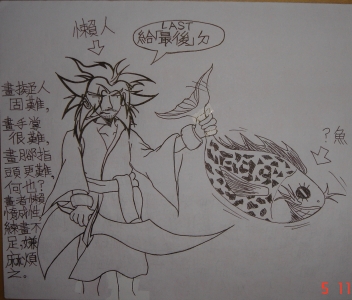 懶人
LAST
給「最後」ㄉ
?魚
畫擬人
固難,
畫手掌
很難,
畫腳指
頭更難,
何也?
畫者懶
惰成性,
練畫不
足,嫌
麻煩
之。
5 11